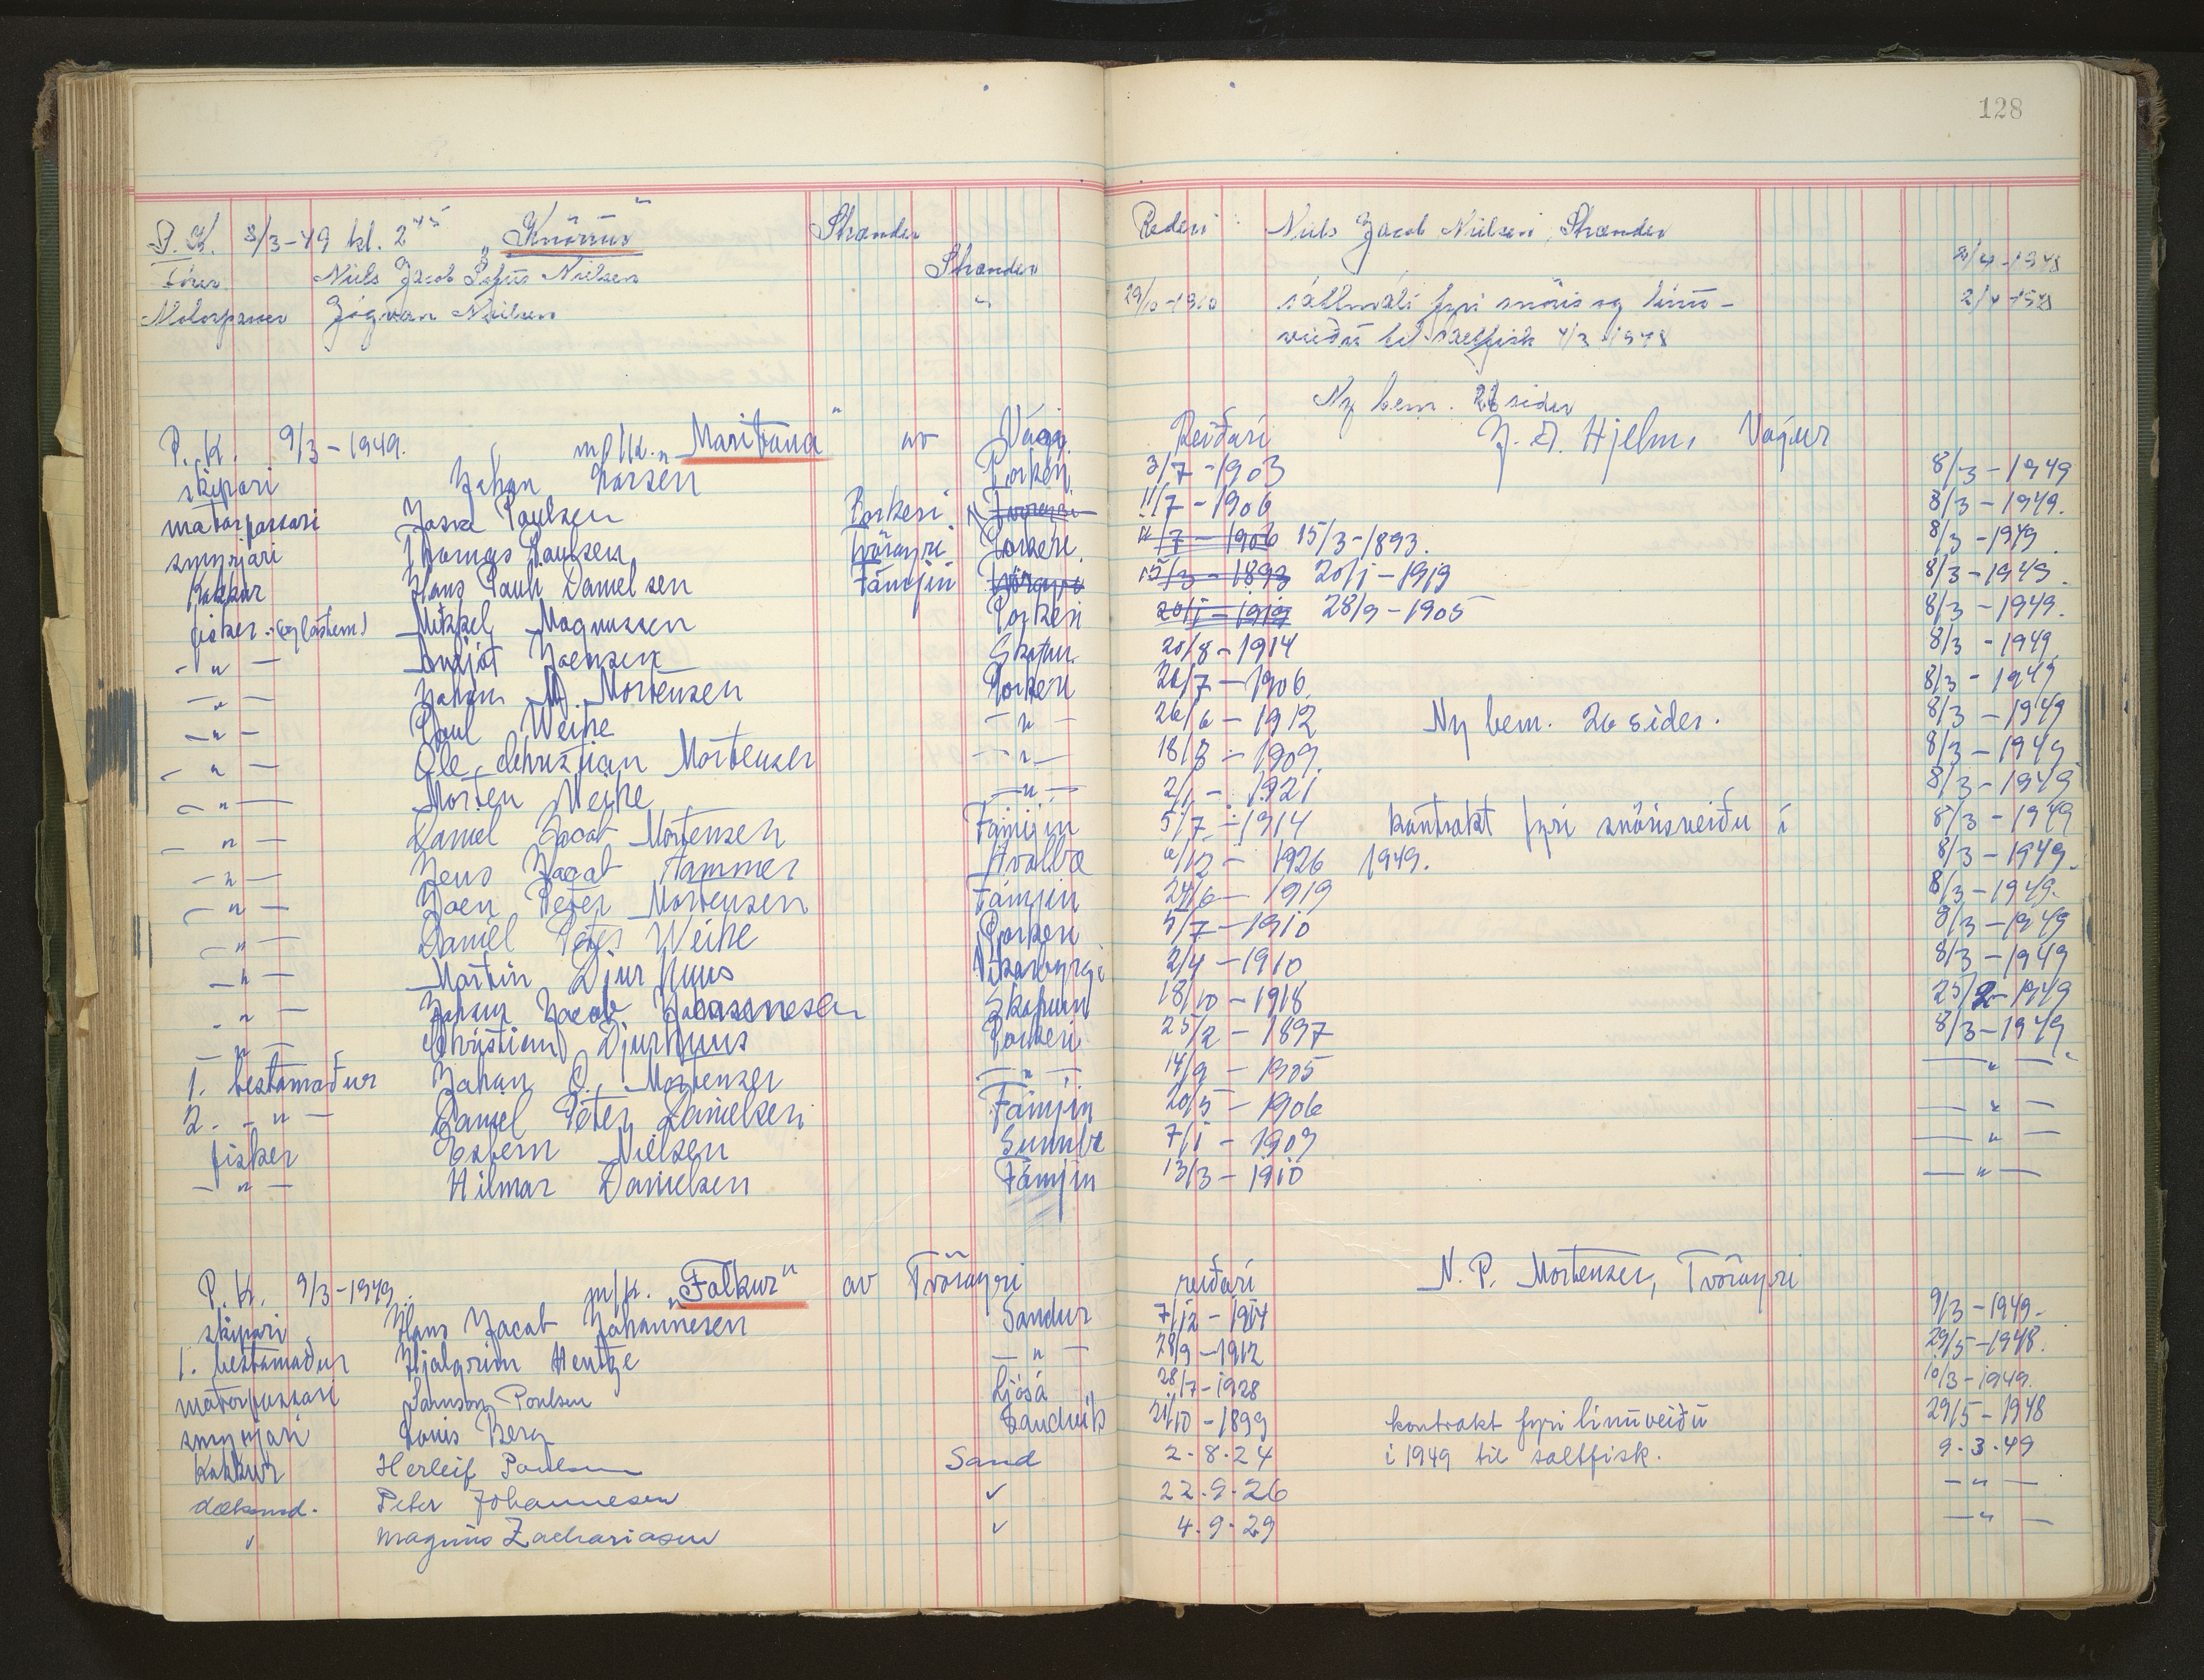 128
P.K. 8/3-49 kl. 2⁴⁵ „Knørrus" Strander Rederi: Niels Jacob Nielsen, Strander
Fører Niels Jacob Nielsen Strander 2/4-1948
Motorpasser Jógvan Nielsen " 29/10-1910 sáttmáli fyri snøris og línu- 2/4-1948
veiðu til saltfisk 4/3-1948
Ny bem. 26 sider
P.K. 9/3-1949. m/sk. „Maritana" av Vági Reiðari J. D. Hjelm, Vágur
skipari Johan Larsen Porkeri 3/7-1903 8/3-1949
motorpassari Poulsen Porkeri 11/7-1906 8/3-1949.
smyrjari Thomas Poulsen Tvörayri Porkeri 11/7-1906 15/3-1893. 8/3-1949
kokkur Hans Pauli Danielsen Fámjin Tvöroyri 15/3-1893 20/1-1919 8/3-1949.
fisker Mikkel Magnussen Porkeri 20/1-1919 28/9-1905 8/3-1949.
-"- Joensen 20/8-1914 8/3-1949
-"- Johan M. Mortensen Porkeri 26/7-1906 8/3-1949
-"- Poul Weihe -"- 26/6-1912 Ny bem. 26 sider. 8/3-1949
-"- Ole Christian Mortensen -"- 18/8-1909 8/3-1949
-"- Morten Weihe -"- 2/1-1921 8/3-1949
-"- Daniel Jacob Mortensen Fámjin 5/7-1914 kontrakt fyri snörisveiðu í 8/3-1949
-"- Jens Jacob Hammer Hvalba /12-1926 1949. 8/3-1949.
-"- Joen Peter Mortensen Fámjin 24/6-1919 8/3-1949.
-"- Daniel Weihe Porkeri 5/7-1910 8/3-1949
-"- Martin Djurhuus Vikarbyrgi 2/4-1910 8/3-1949
-"- Johan Jacob 18/10-1918 25/2-1949
-"- Christian Djurhuus Porkeri 25/2-1897 8/3-1949
1. bestamaður Johan O. Mortensen -"- 14/9-1905 -"-
2. -"- Daniel Peter Danielsen Fámjin 20/5-1906 -"-
fisker Esbern Nielsen Sumba 7/1-1909 -"-
-"- Hilmar Danielsen Fámjin 13/3-1910 -"-
P.K. 9/3-1949. m/k. „Falkur" av Tvöroyri reiðari N. P. Mortensen, Tvöroyri
skipari Hans Jacob Johannesen Sandur 7/12-1914 9/3-1949.
1. bestamaður Hjalgrim Hentze -"- 28/9-1912 29/5-1948.
motorpassari Samson Poulsen Ljósá 28/7-1928 10/3-1949.
smyrjari Louis Berg Sandvík 21/10-1899 kontrakt fyri línuveiðu 29/5-1948
kokkur Herleif Poulsen Sand 2-8-24 i 1949 til saltfisk. 9.3.49
dæksmd. Peter Johannesen ✓ 22.9.26 -"-
✓ Magnus Zachariasen ✓ 4.9.29 -"-